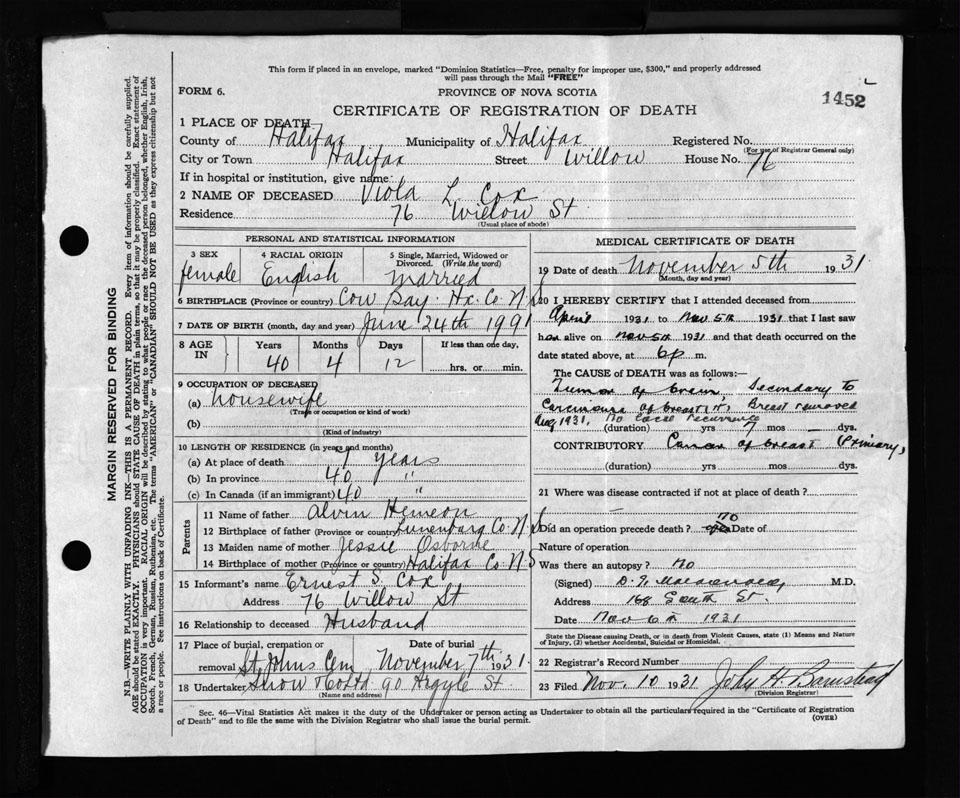 This form if placed in an envelope, marked "Dominion Statistics—Free, penalty for improper use, $300," and properly addressed
will pass through the Mail "FREE"
FORM 6.
PROVINCE OF NOVA SCOTIA
1452
CERTIFICATE OF REGISTRATION OF DEATH
1 PLACE OF DEATH
County of Halifax Municipality of Halifax Registered No.
(For use of Registrar General only)
City or Town Halifax Street Willow House No. 76
If in hospital or institution, give name
2 NAME OF DECEASED Viola L Cox
Residence 76 Willow St
(Usual place of abode)
PERSONAL AND STATISTICAL INFORMATION
3 SEX female
4 RACIAL ORIGIN English
5 Single, Married, Widowed or Divorced. (Write the word) Married
6 BIRTHPLACE (Province or country) Cow Bay Hx. Co. N.S
7 DATE OF BIRTH (month, day and year) June 24th 1991
8 AGE IN Years 40 Months 4 Days 12 If less than one day, hrs. or min.
9 OCCUPATION OF DECEASED
(a) housewife
(Trade or occupation or kind of work)
(b)
(Kind of industry)
10 LENGTH OF RESIDENCE (in years and months)
(a) At place of death years
(b) In province 40 "
(c) In Canada (if an immigrant) 40 "
Parents
11 Name of father Alvin Hemeon
12 Birthplace of father (Province or country) Lunenburg Co. N.S
13 Maiden name of mother Jessie Osborne
14 Birthplace of mother (Province or country) Halifax Co N.S
15 Informant's name Ernest S. Cox
Address 76 Willow St
16 Relationship to deceased Husband
17 Place of burial, cremation or removal St Johns Cem Date of burial November 7th 1931.
18 Undertaker Snow & Co Ltd 90 Argyle St
(Name and address)
MEDICAL CERTIFICATE OF DEATH
19 Date of death November 5th 1931.
(Month, day and year)
20 I HEREBY CERTIFY that I attended deceased from
April 1931 to Nov 5th 1931 that I last saw
h alive on Nov 5th 1931 and that death occurred on the
date stated above, at 6 p m.
The CAUSE of DEATH was as follows:
Tumor of brain, Secondary to
Carcinoma of breast Breast removed
Aug 1931. No local recurrence
(duration) yrs 7 mos — dys.
CONTRIBUTORY Cancer of breast (Primary)
(duration) yrs mos dys.
21 Where was disease contracted if not at place of death?
Did an operation precede death? no Date of
Nature of operation
Was there an autopsy? no
(Signed) M.D.
Address 168 South St.
Date Nov 6th 1931
State the Disease causing Death, or in death from Violent Causes, state (1) Means and Nature
of Injury, (2) whether Accidental, Suicidal or Homicidal.
22 Registrar's Record Number
23 Filed Nov. 10 1931 John H. Barnstead
(Division Registrar)
Sec. 46—Vital Statistics Act makes it the duty of the Undertaker or person acting as Undertaker to obtain all the particulars required in the "Certificate of Registration
of Death" and to file the same with the Division Registrar who shall issue the burial permit.
(OVER)
MARGIN RESERVED FOR BINDING
N.B.—WRITE PLAINLY WITH UNFADING INK—THIS IS A PERMANENT RECORD. Every item of information should be carefully supplied.
AGE should be stated EXACTLY. PHYSICIANS should STATE CAUSE OF DEATH in plain terms, so that it may be properly classified. Exact statement of
OCCUPATION is very important. RACIAL ORIGIN will be described by stating to what people or race the deceased person belonged, whether English, Irish,
Scotch, French, German, Russian, Ruthenian, etc. The terms "AMERICAN" or "CANADIAN" SHOULD NOT BE USED as they express citizenship but not
a race or people. See instructions on back of Certificate.